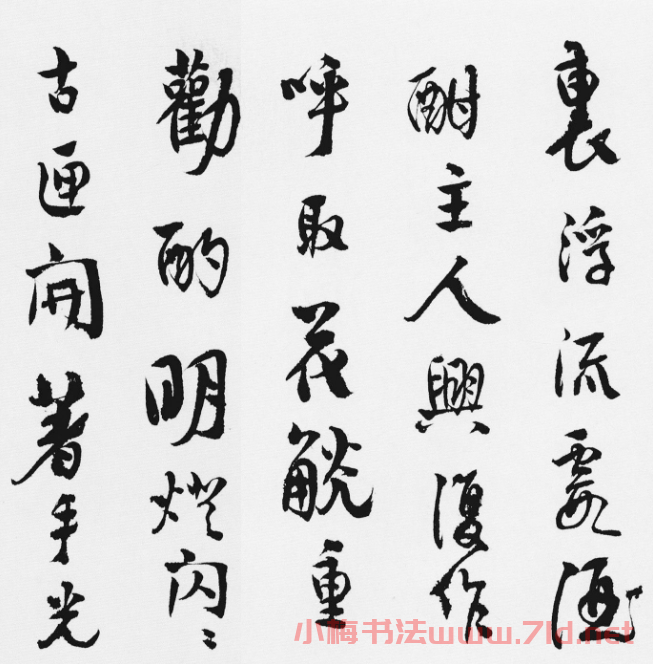 裏浮流霞酒
酣主人興復作
呼取花觥重
勸酌明燈閃〻
古匣開著手光
小梅书法www.7ld.net